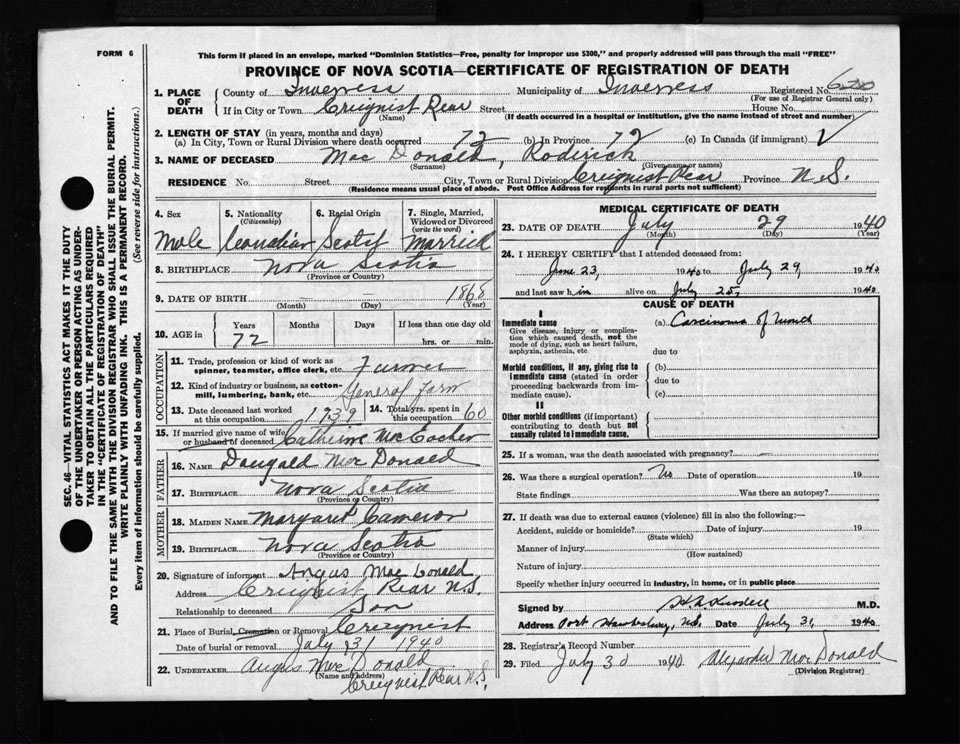 FORM 6
This form if placed in an envelope, marked "Dominion Statistics—Free, penalty for improper use $300," and properly addressed will pass through the mail "FREE"
PROVINCE OF NOVA SCOTIA—CERTIFICATE OF REGISTRATION OF DEATH
SEC. 46—VITAL STATISTICS ACT MAKES IT THE DUTY
OF THE UNDERTAKER OR PERSON ACTING AS UNDER-
TAKER TO OBTAIN ALL THE PARTICULARS REQUIRED
IN THE "CERTIFICATE OF REGISTRATION OF DEATH"
AND TO FILE THE SAME WITH THE DIVISION REGISTRAR WHO SHALL ISSUE THE BURIAL PERMIT.
WRITE PLAINLY WITH UNFADING INK. THIS IS A PERMANENT RECORD.
Every item of information should be carefully supplied. (See reverse side for instructions.)
1. PLACE OF DEATH County of Inverness Municipality of Inverness Registered No.
(For use of Registrar General only)
If in City or Town Creignist Rear Street House No.
(Name) (If death occurred in a hospital or institution, give the name instead of street and number)
2. LENGTH OF STAY (in years, months and days)
(a) In City, Town or Rural Division where death occurred 72 (b) In Province 72 (c) In Canada (if immigrant)
3. NAME OF DECEASED Mac Donald, Roderick
(Surname) (Given name or names)
RESIDENCE No. Street City, Town or Rural Division Creignist Rear Province N.S.
(Residence means usual place of abode. Post Office Address for residents in rural parts not sufficient)
4. Sex 5. Nationality (Citizenship) 6. Racial Origin 7. Single, Married, Widowed or Divorced (write the word)
Male Canadian Scotch Married
8. BIRTHPLACE Nova Scotia
(Province or Country)
9. DATE OF BIRTH 1868
(Month) (Day) (Year)
10. AGE in Years Months Days If less than one day old
72 hrs. or min.
OCCUPATION
11. Trade, profession or kind of work as spinner, teamster, office clerk, etc. Farmer
12. Kind of industry or business, as cotton-mill, lumbering, bank, etc. General Farm
13. Date deceased last worked at this occupation 1939 14. Total yrs. spent in this occupation 60
15. If married give name of wife or husband of deceased Catherine Mac Eacher
FATHER
16. NAME Dougald Mac Donald
17. BIRTHPLACE Nova Scotia
(Province or Country)
MOTHER
18. MAIDEN NAME Margaret Cameron
19. BIRTHPLACE Nova Scotia
(Province or Country)
20. Signature of informant Angus Mac Donald
Address Creignist Rear N.S.
Relationship to deceased Son
21. Place of Burial, Cremation or Removal Creignist
Date of burial or removal July 31 1940
22. UNDERTAKER Angus Mac Donald
(Name and address)
Creignist Rear N.S.
MEDICAL CERTIFICATE OF DEATH
23. DATE OF DEATH July 29 1940
(Month) (Day) (Year)
24. I HEREBY CERTIFY that I attended deceased from:
June 23, 1940 to July 29, 1940
and last saw him alive on July 25, 1940
CAUSE OF DEATH
I
Immediate cause (a) Carcinoma of
Give disease, injury or complication which caused death, not the mode of dying, such as heart failure, asphyxia, asthenia, etc.
due to
Morbid conditions, if any, giving rise to immediate cause (stated in order proceeding backwards from immediate cause).
(b)
due to
(c)
II
Other morbid conditions (if important) contributing to death but not causally related to immediate cause.
25. If a woman, was the death associated with pregnancy?
26. Was there a surgical operation? No Date of operation 19
State findings Was there an autopsy?
27. If death was due to external causes (violence) fill in also the following:—
Accident, suicide or homicide? Date of injury 19
(State which)
Manner of injury
(How sustained)
Nature of injury
Specify whether injury occurred in industry, in home, or in public place
Signed by M.D.
Address Port Hawkesbury, N.S. Date July 31, 1940
28. Registrar's Record Number
29. Filed July 30 1940 Alexander Mac Donald
(Division Registrar)